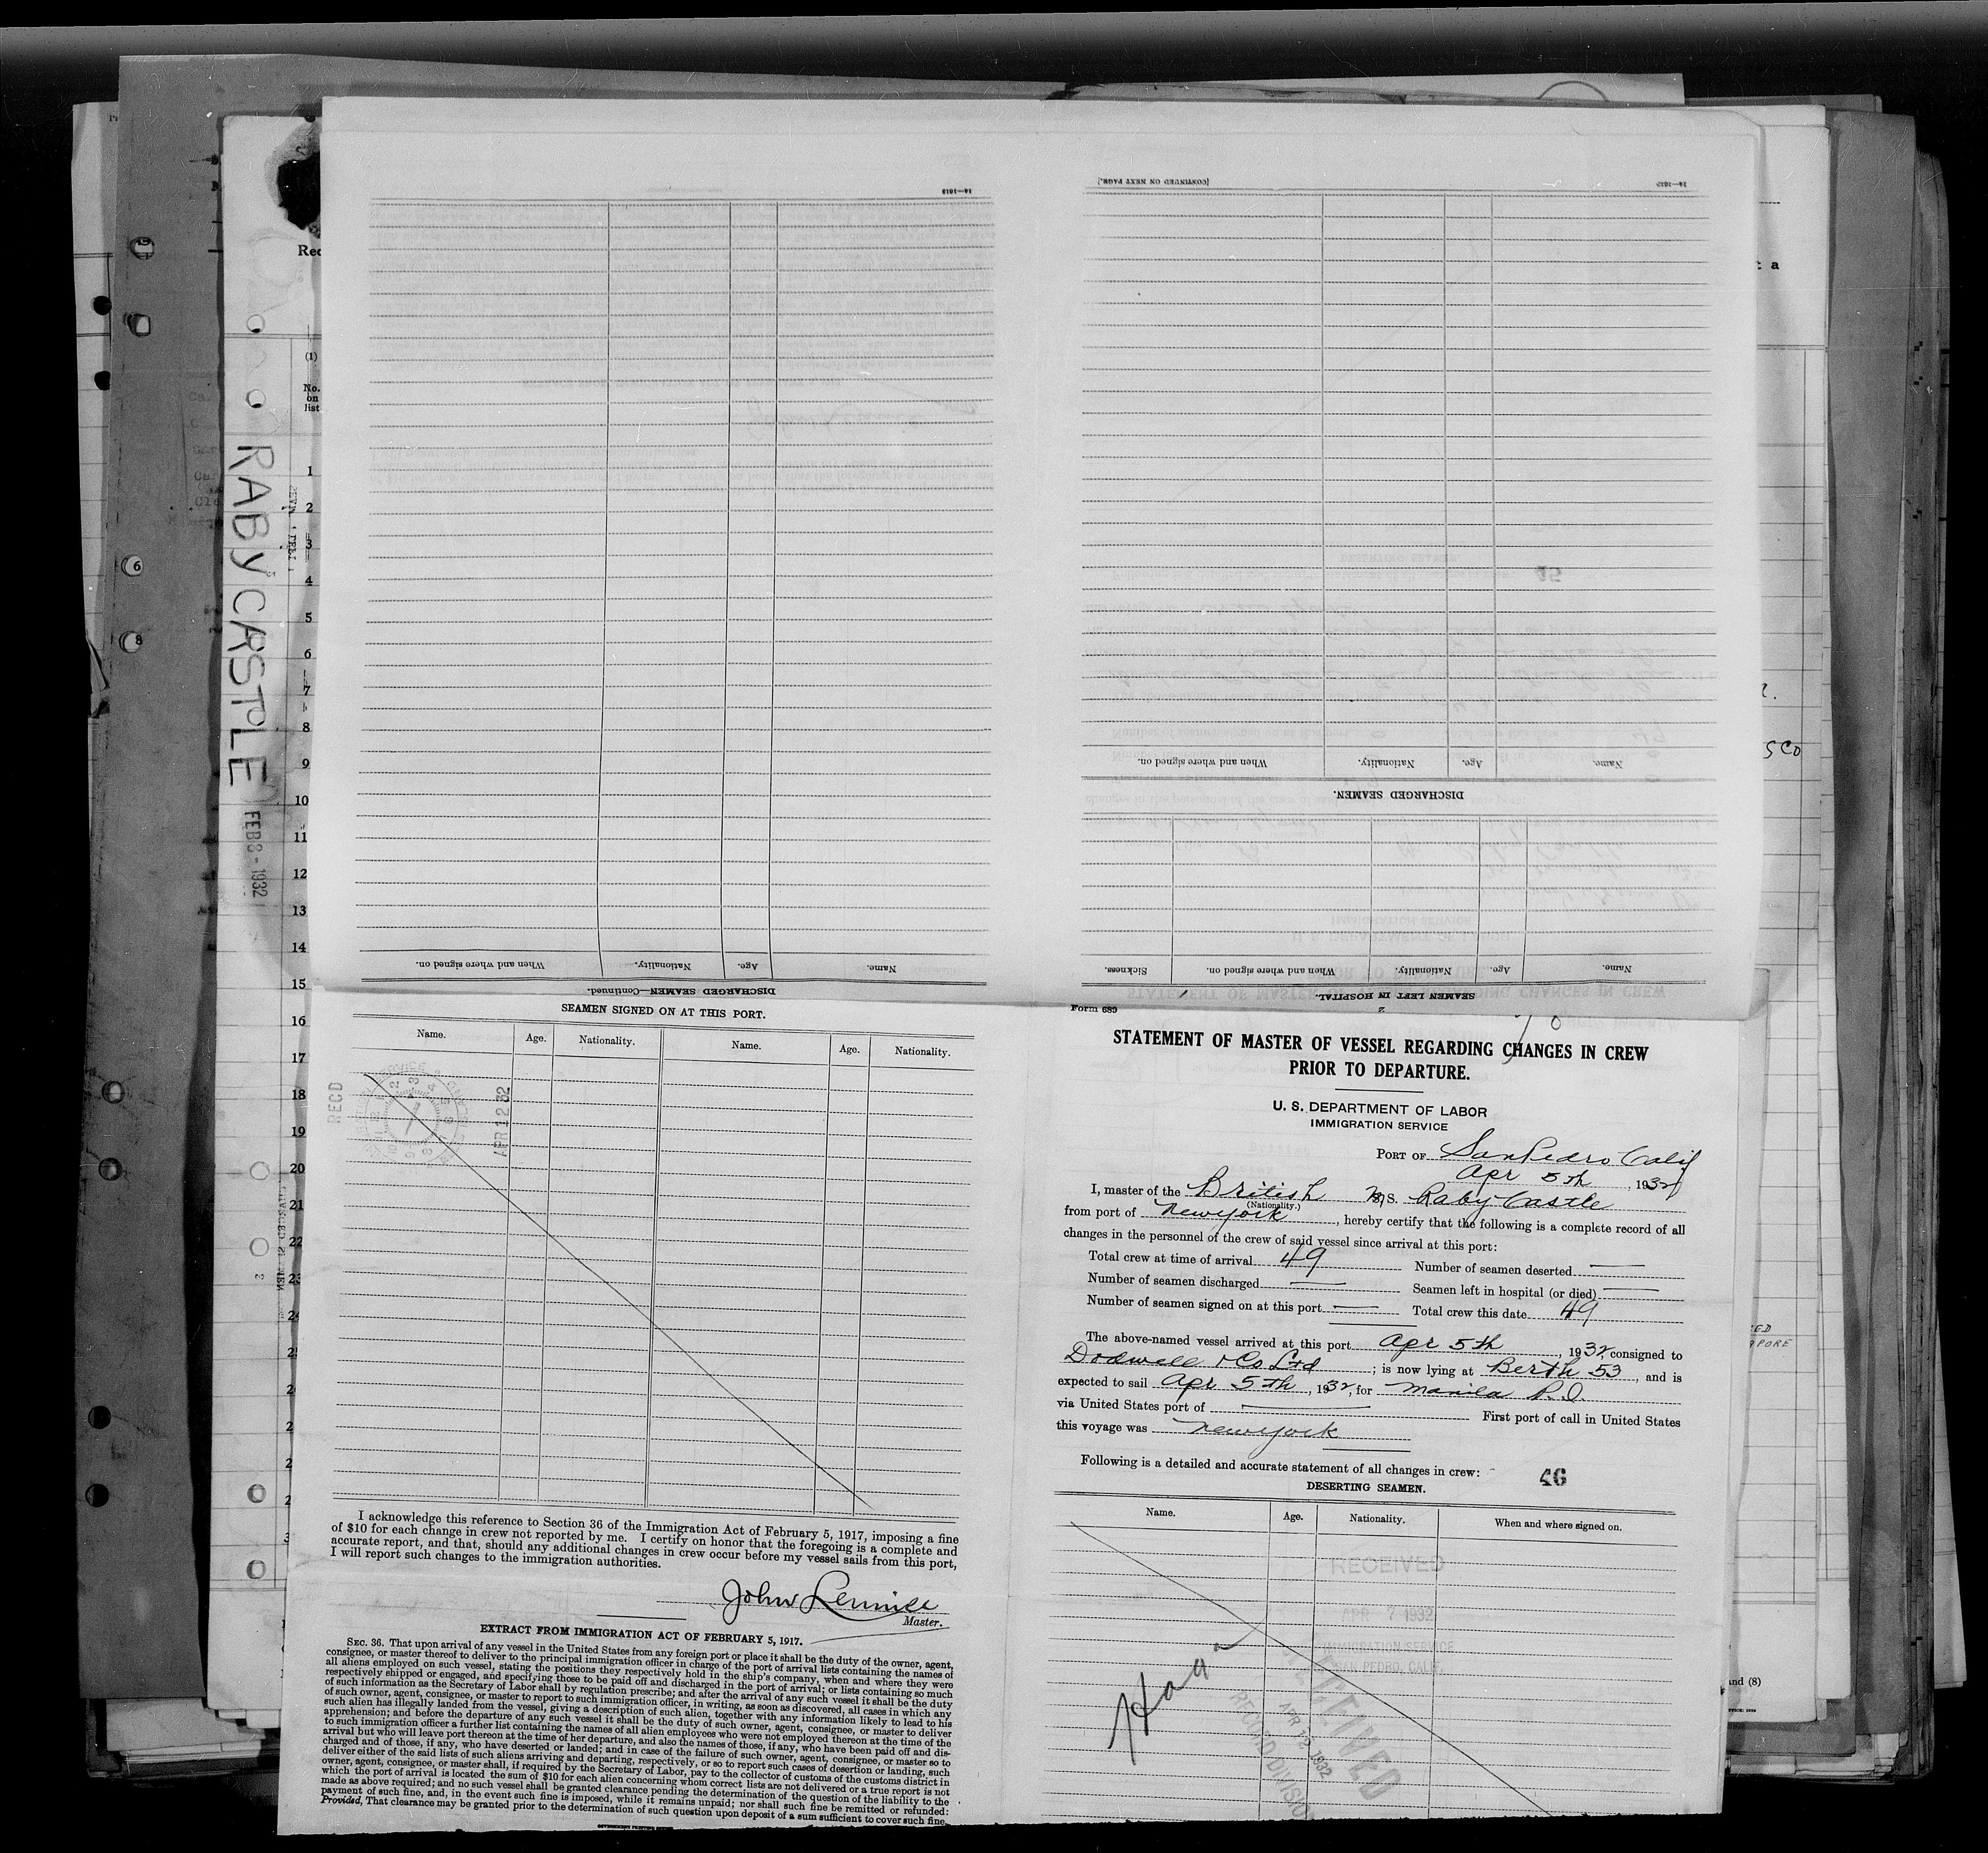 14—1613
[CONTINUED ON NEXT PAGE.]
14—1613
Name.
Age.
Nationality.
When and where signed on.
DISCHARGED SEAMEN.
Name.
Age.
Nationality.
When and where signed on.
DISCHARGED SEAMEN—Continued.
Name.
Age.
Nationality.
When and where signed on.
Sickness.
SEAMEN LEFT IN HOSPITAL.
2
Rec
(1)
No.
on
list
1
2
3
4
5
6
7
8
9
10
11
12
13
14
15
16
17
18
19
20
21
22
23
RABY CASTLE
FEB 8 - 1932
SEAMEN SIGNED ON AT THIS PORT.
Name. Age. Nationality. Name. Age. Nationality.
RECD
APR 12 32
I acknowledge this reference to Section 36 of the Immigration Act of February 5, 1917, imposing a fine
of $10 for each change in crew not reported by me. I certify on honor that the foregoing is a complete and
accurate report, and that, should any additional changes in crew occur before my vessel sails from this port,
I will report such changes to the immigration authorities.
John Rennie
Master.
EXTRACT FROM IMMIGRATION ACT OF FEBRUARY 5, 1917.
SEC. 36. That upon arrival of any vessel in the United States from any foreign port or place it shall be the duty of the owner, agent,
consignee, or master thereof to deliver to the principal immigration officer in charge of the port of arrival lists containing the names of
all aliens employed on such vessel, stating the positions they respectively hold in the ship's company, when and where they were
respectively shipped or engaged, and specifying those to be paid off and discharged in the port of arrival; or lists containing so much
of such information as the Secretary of Labor shall by regulation prescribe; and after the arrival of any such vessel it shall be the duty
of such owner, agent, consignee, or master to report to such immigration officer, in writing, as soon as discovered, all cases in which any
such alien has illegally landed from the vessel, giving a description of such alien, together with any information likely to lead to his
apprehension; and before the departure of any such vessel it shall be the duty of such owner, agent, consignee, or master to deliver
to such immigration officer a further list containing the names of all alien employees who were not employed thereon at the time of the
arrival but who will leave port thereon at the time of her departure, and also the names of those, if any, who have been paid off and dis-
charged and of those, if any, who have deserted or landed; and in case of the failure of such owner, agent, consignee, or master so to
deliver either of the said lists of such aliens arriving and departing, respectively, or so to report such cases of desertion or landing, such
owner, agent, consignee, or master shall, if required by the Secretary of Labor, pay to the collector of customs of the customs district in
which the port of arrival is located the sum of $10 for each alien concerning whom correct lists are not delivered or a true report is not
made as above required; and no such vessel shall be granted clearance pending the determination of the question of the liability to the
payment of such fine, and, in the event such fine is imposed, while it remains unpaid; nor shall such fine be remitted or refunded:
Provided, That clearance may be granted prior to the determination of such question upon deposit of a sum sufficient to cover such fine.
Form 689
STATEMENT OF MASTER OF VESSEL REGARDING CHANGES IN CREW
PRIOR TO DEPARTURE.
U. S. DEPARTMENT OF LABOR
IMMIGRATION SERVICE
PORT OF San Pedro Calif
Apr 5th, 1932
I, master of the British M.S. Raby Castle
(Nationality.)
from port of New york, hereby certify that the following is a complete record of all
changes in the personnel of the crew of said vessel since arrival at this port:
Total crew at time of arrival 49 Number of seamen deserted —
Number of seamen discharged — Seamen left in hospital (or died) —
Number of seamen signed on at this port — Total crew this date 49
The above-named vessel arrived at this port Apr 5th, 1932 consigned to
Dodwell & Co Ltd; is now lying at Berth 53, and is
expected to sail Apr 5th, 1932, for Manila P.I.
via United States port of — First port of call in United States
this voyage was New york
Following is a detailed and accurate statement of all changes in crew:
46
DESERTING SEAMEN.
Name. Age. Nationality. When and where signed on.
RECEIVED
APR 7 1932
IMMIGRATION SERVICE
SAN PEDRO, CALIF.
RECEIVED
APR 12 1932
RECORD DIVISION
t a
SCO
PORE
and (8)